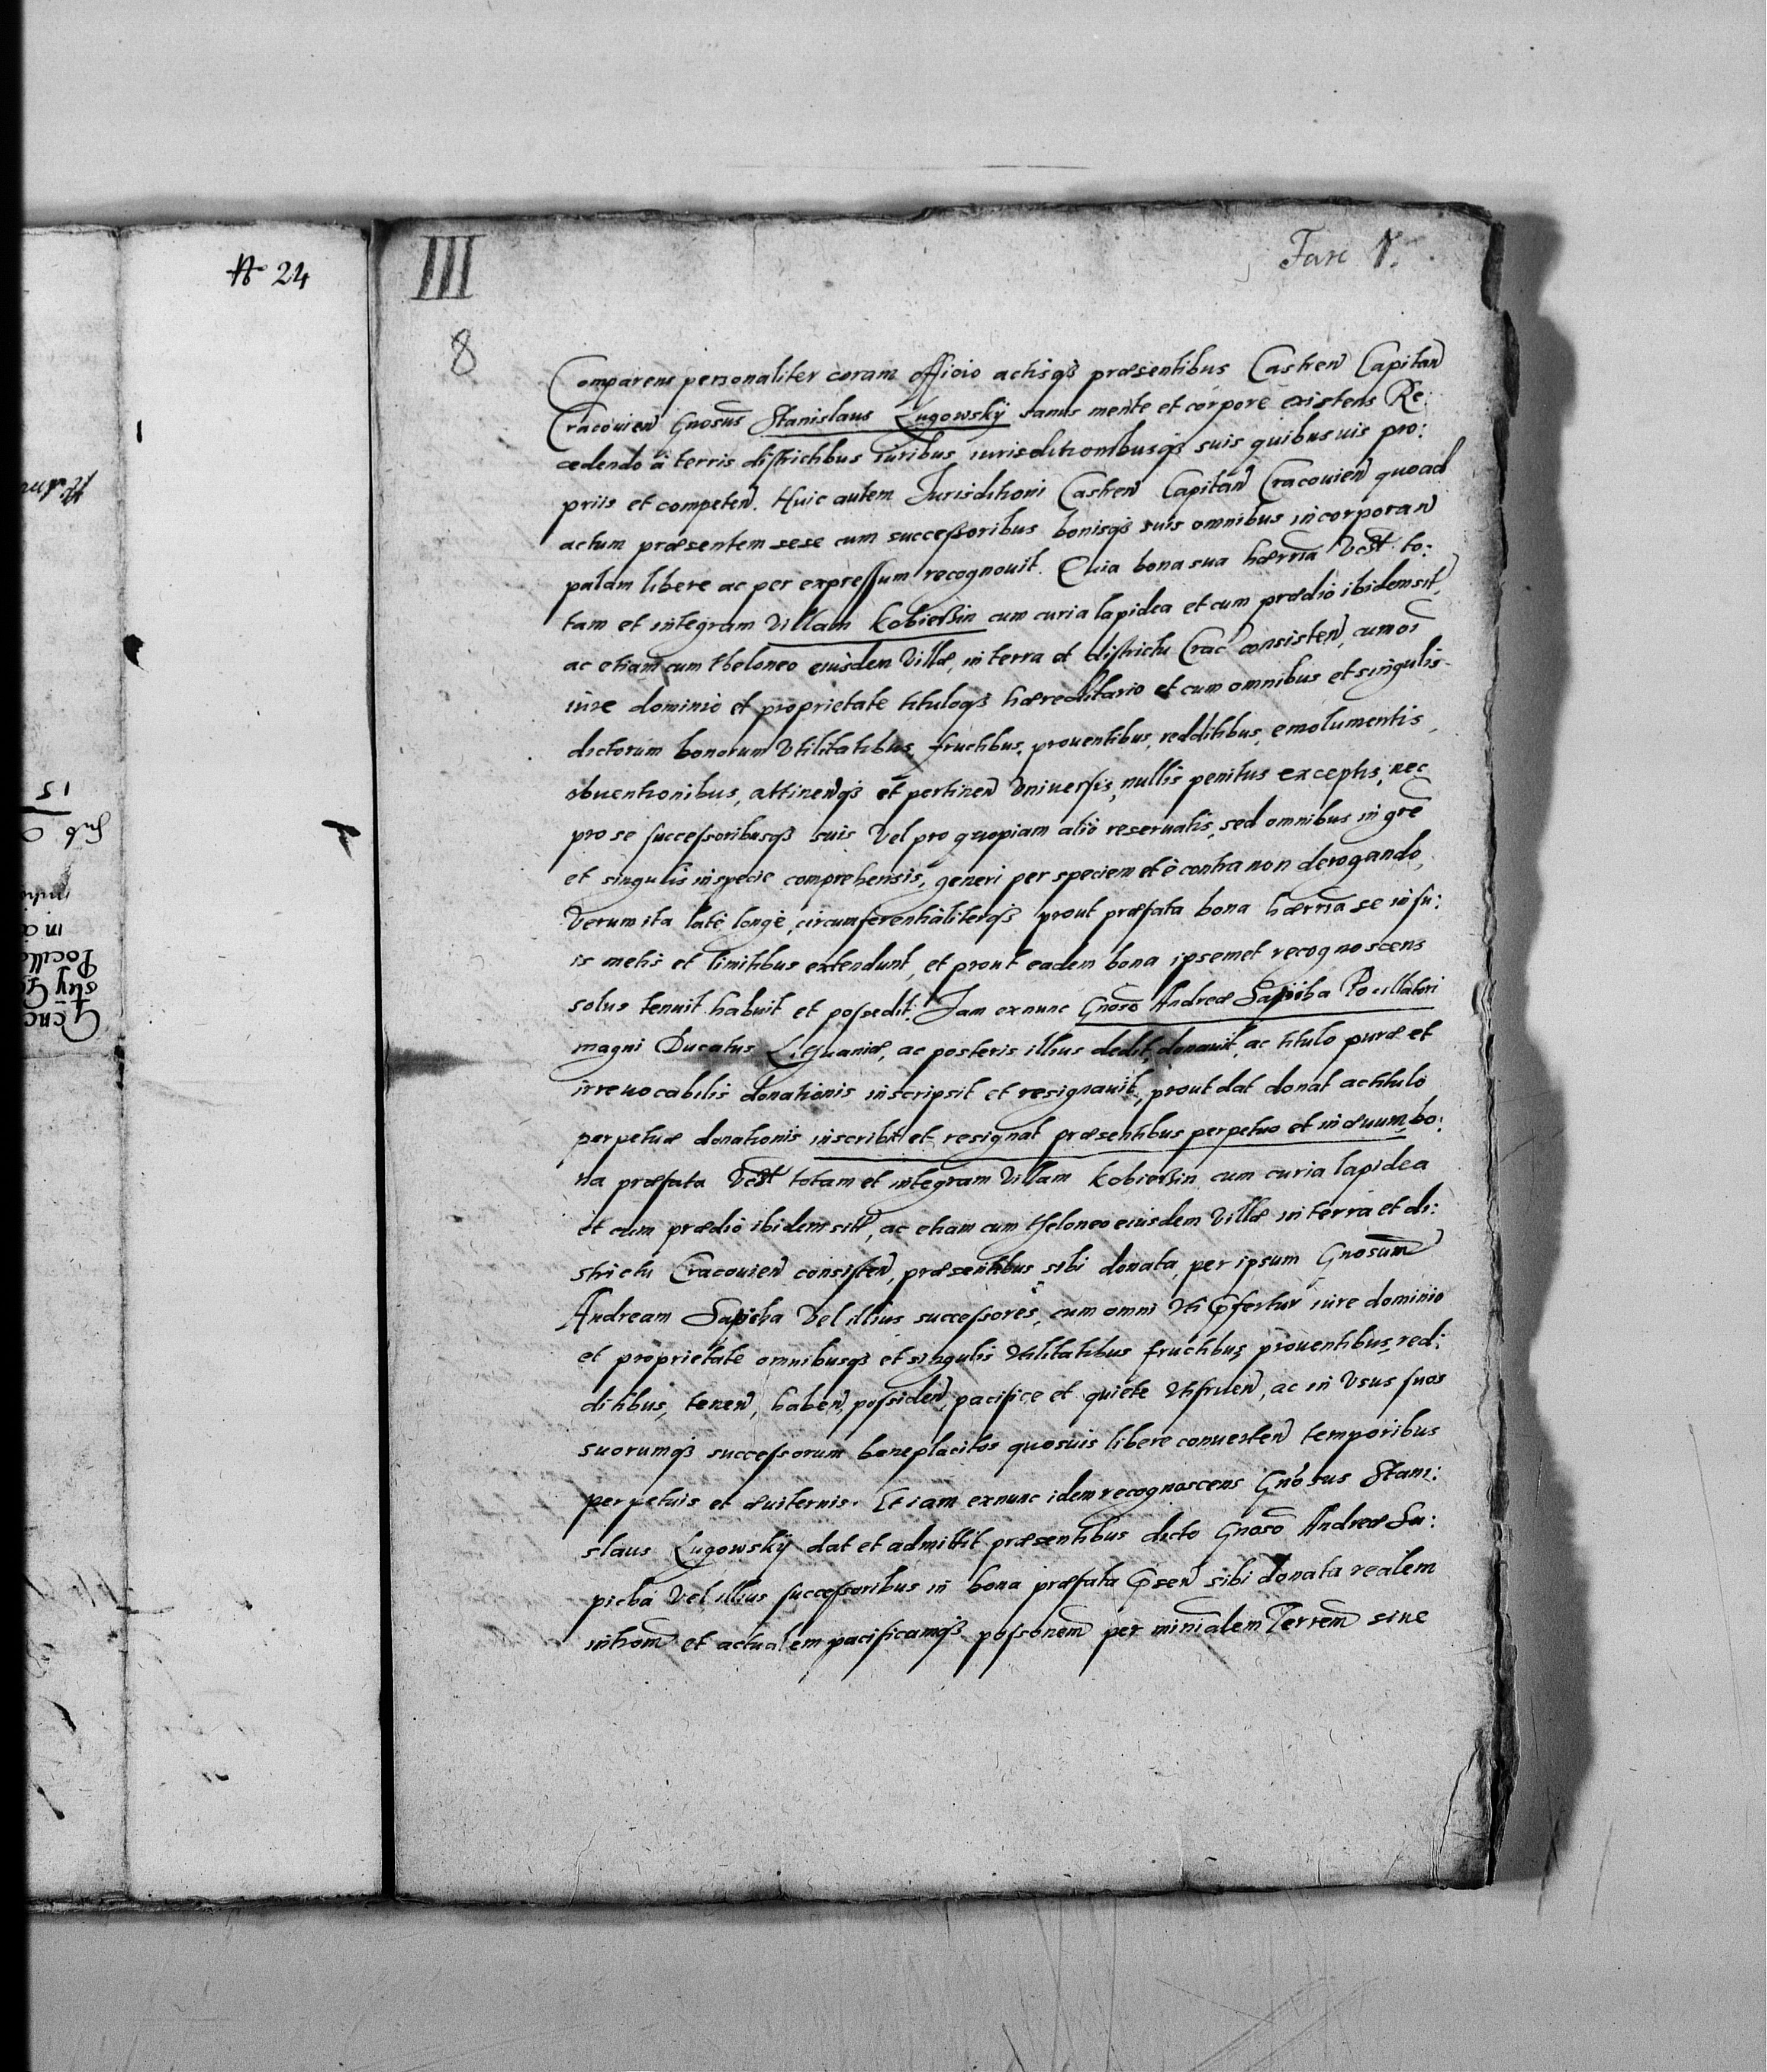 № 24
III
Fasc V.
8
Comparens personaliter coram officio actisq̃ præsentibus Castren̄ Capitan̄
Cracouien̄ Gnosus̄ Stanislaus Lugowskÿ sanus mente et corpore existens Re:
cedendo à terris districtibus iuribus iurisditionibusq̃ suis quibusuis pro:
priis et competen̄. Huic autem Jurisditioni Castren̄ Capitan̄ Cracouien̄ quoad
actum præsentem sese cum successoribus bonisq̃ suis omnibus incorporan̄
palam libere ac per expressum recognouit. Quia bona sua hærria̅ vc̅st to:
tam et integram villam Kobierzin cum curia lapidea et cum prædio ibidem sit̄,
ac etiam cum theloneo eiusden villæ, in terra et districtu Crac̄ consisten̄, cum oi̅
iure dominio et proprietate tituloq̃ hæreditario et cum omnibus et singulis
dictorum bonorum vtilitatibus, fructibus, prouentibus, redditibus, emolumentis,
obuentionibus, attinen̄q̃ et pertinen̄ vniuersis, nullis penitus exceptis, nec
pro se successoribusq̃ suis vel pro quopiam alio reseruatis, sed omnibus in gr̄e
et singulis in specie comprehensis, generi per speciem et è contra non derogando,
verum ita latè longè, circumferentialiterq̃ prout præfata bona hærria̅ se in su:
is metis et limitibus extendunt, et prout eadem bona ipsemet recognoscens
solus tenuit habuit et possedit. Jam ex nunc Gnoso̅ Andreæ Sapieha Pocillatori
magni Ducatus Lithuaniæ, ac posteris illius dedit, donauit, ac titulo puræ et
irreuocabilis donationis inscripsit et resignauit, prout dat donat ac titulo
perpetuæ donationis inscribit et resignat præsentibus perpetuo et in æuum, bo:
na præfata vc̅st totam et integram villam Kobierzin cum curia lapidea
et cum prædio ibidem sit̄, ac etiam cum theloneo eiusdem villæ in terra et di:
strictu Cracouien̄ consisten̄, præsentibus sibi donata, per ipsum Gnosum̄
Andream Sapieha vel illius successores, cum omni vti p̄fertur iure dominio
et proprietate omnibusq̃ et singulis vtilitatibus fructibus prouentibus, red:
ditibus, tenen̄, haben̄, possiden̄, pacifice et quiete vtifruen̄, ac in vsus suos
suorumq̃ successorum beneplacitos quosuis libere conuerten̄ temporibus
perpetuis et æuiternis. Et iam ex nunc idem recognoscens Gno̅sus Stani:
slaus Lugowskÿ dat et admittit præsentibus dicto Gnoso̅ Andreæ Sa:
pieha vel illius successoribus in bona præfata p̄sen̄ sibi donata realem
intrōm et actualem pacificamq̃ possonem̄ per mini̅alem Terrem̄ siue